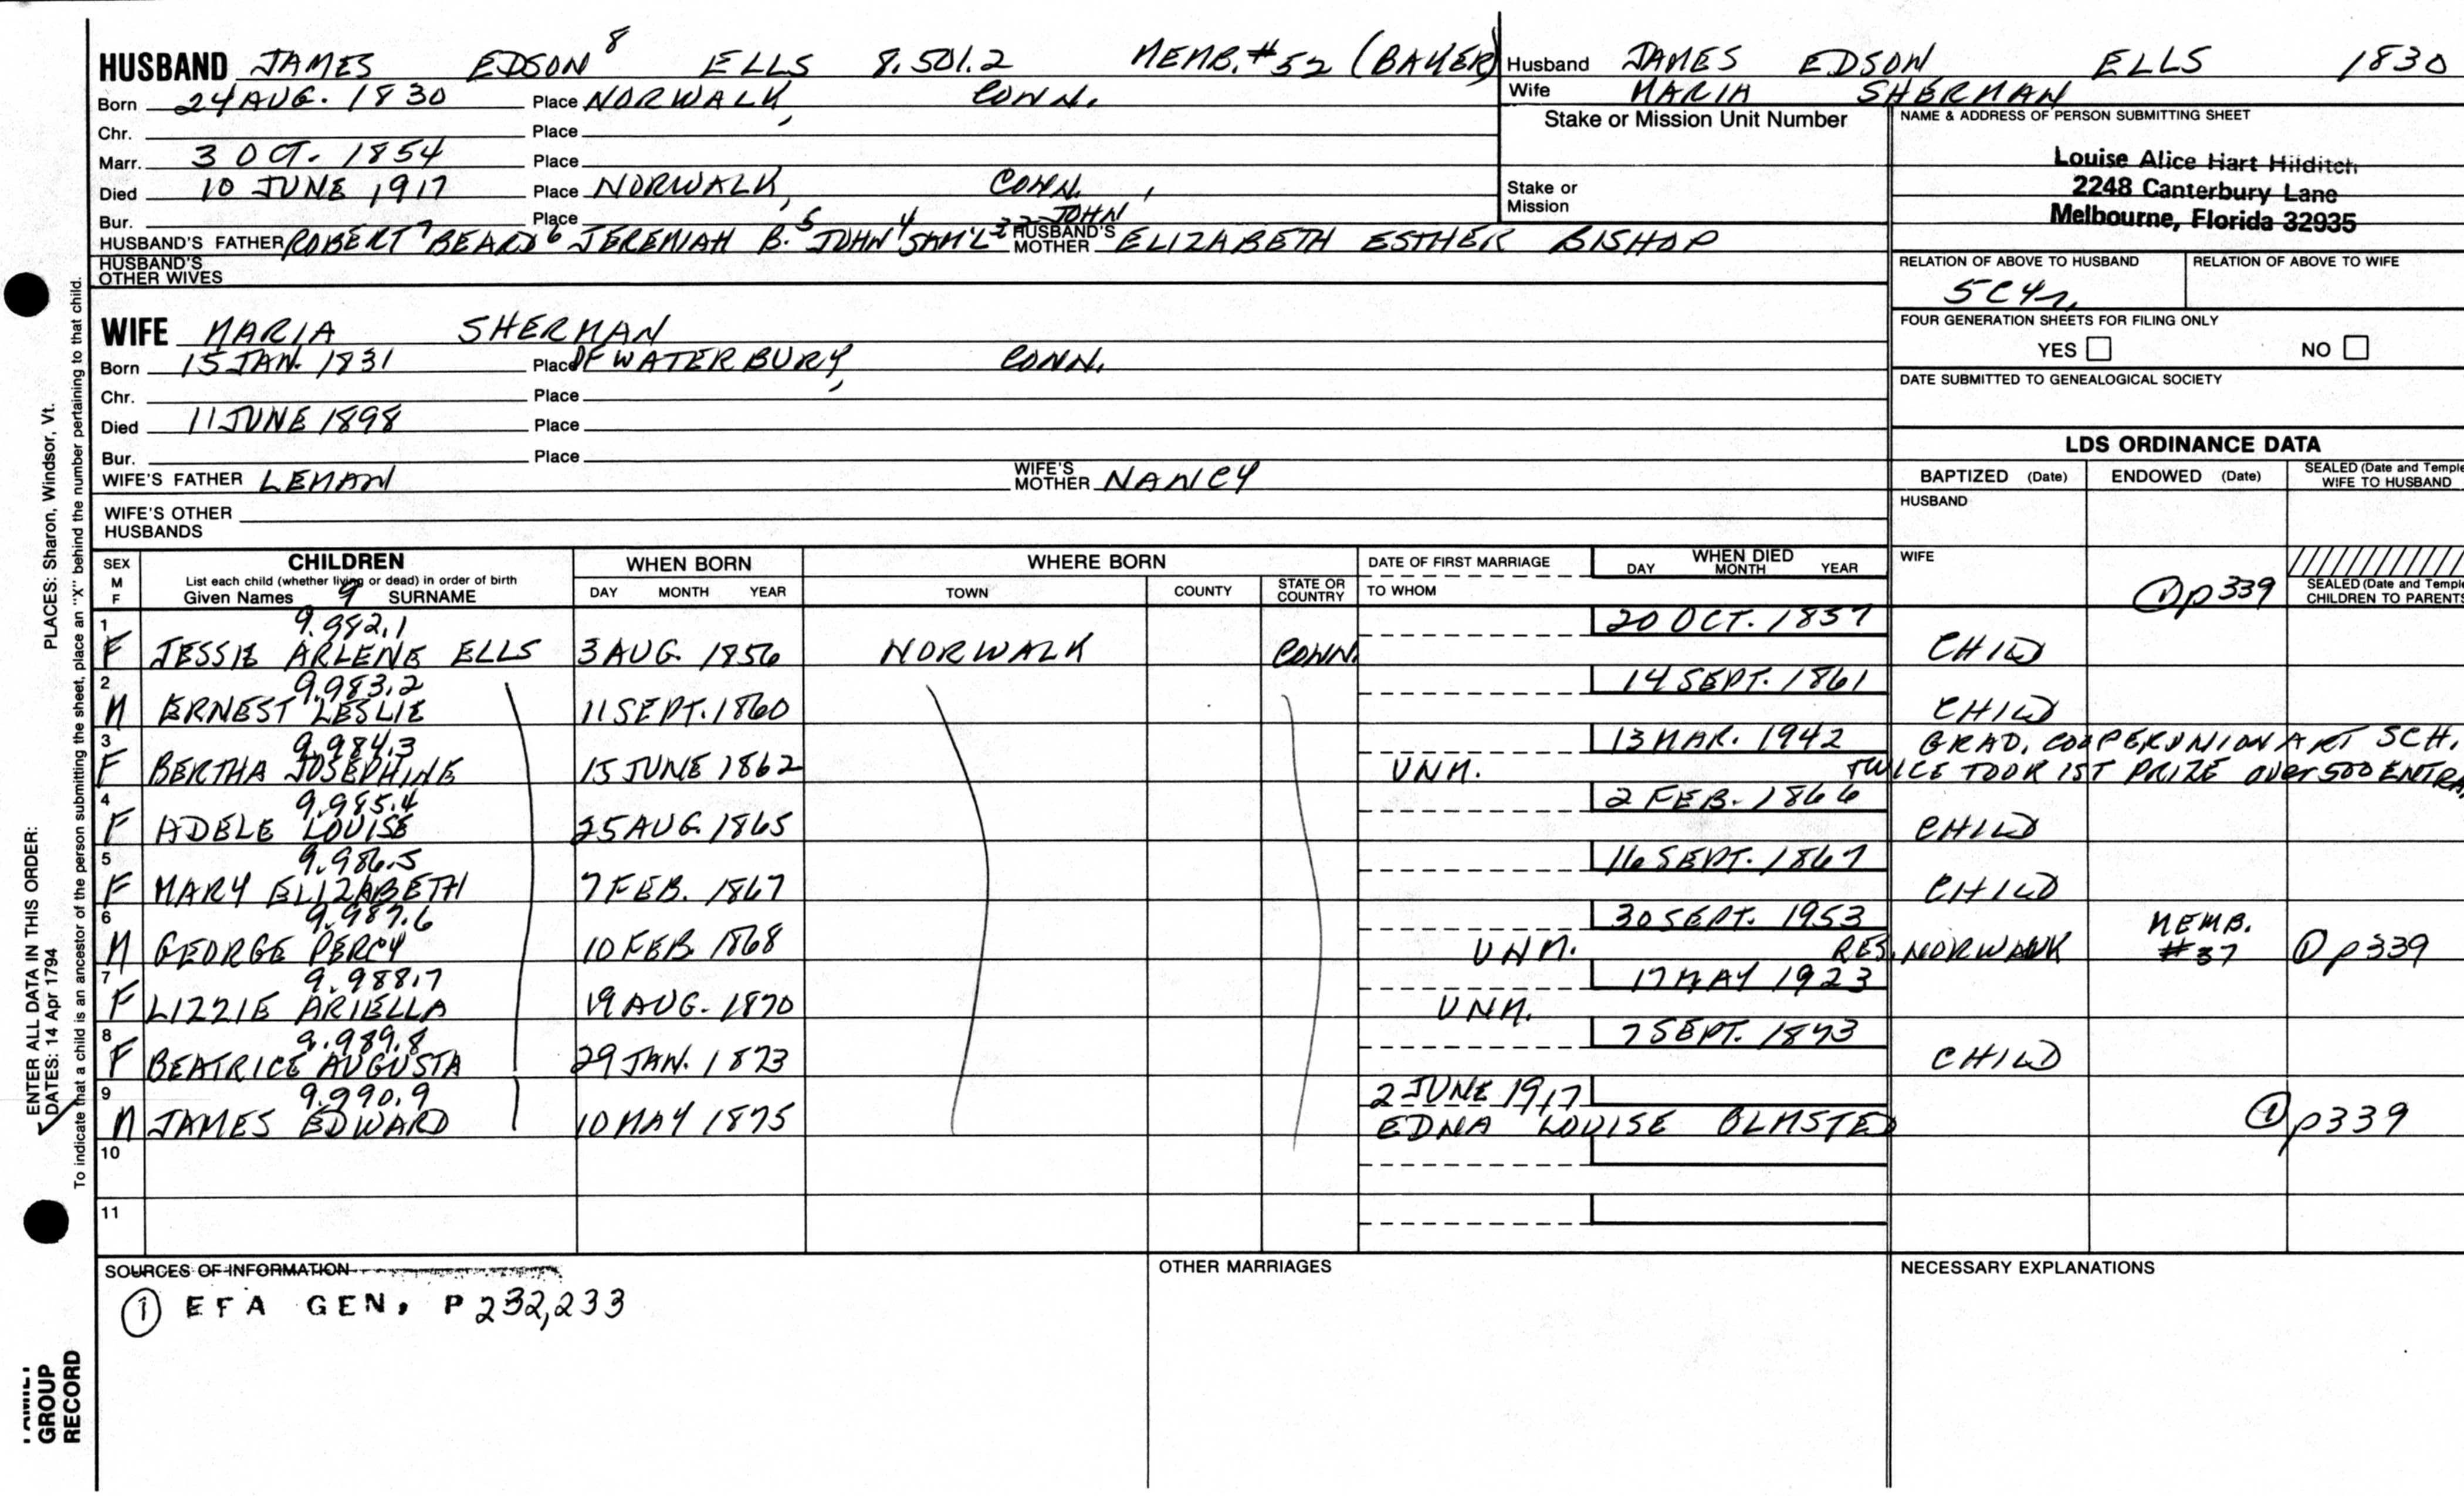 HUSBAND JAMES EDSON 8 ELLS 8.501.2 MEMB.#52 (BAKER)
Born 24 AUG. 1830 Place NORWALK, CONN.
Chr. Place
Marr. 3 OCT. 1854 Place
Died 10 JUNE 1917 Place NORWALK, CONN.,
Bur. Place
HUSBAND'S FATHER ROBERT 7 BEARD 6 JEREMIAH B. 5 JOHN 4 SAM'L JOHN HUSBAND'S MOTHER ELIZABETH ESTHER BISHOP
HUSBAND'S OTHER WIVES
WIFE MARIA SHERMAN
Born 15 JAN. 1831 Place OF WATERBURY, CONN.
Chr. Place
Died 11 JUNE 1898 Place
Bur. Place
WIFE'S FATHER LEMAN WIFE'S MOTHER NANCY
WIFE'S OTHER HUSBANDS
Husband JAMES EDSON ELLS 1830
Wife MARIA SHERMAN
Stake or Mission Unit Number
Stake or Mission
NAME & ADDRESS OF PERSON SUBMITTING SHEET
Louise Alice Hart Hilditch
2248 Canterbury Lane
Melbourne, Florida 32935
RELATION OF ABOVE TO HUSBAND RELATION OF ABOVE TO WIFE
5C4r.
FOUR GENERATION SHEETS FOR FILING ONLY
YES NO
DATE SUBMITTED TO GENEALOGICAL SOCIETY
LDS ORDINANCE DATA
BAPTIZED (Date) ENDOWED (Date) SEALED (Date and Temple WIFE TO HUSBAND
HUSBAND
WIFE ① p339 SEALED (Date and Temple CHILDREN TO PARENTS
SEX M F CHILDREN WHEN BORN WHERE BORN DATE OF FIRST MARRIAGE WHEN DIED
List each child (whether living or dead) in order of birth DAY MONTH YEAR
Given Names 9 SURNAME DAY MONTH YEAR TOWN COUNTY STATE OR COUNTRY TO WHOM
1 9.982.1 20 OCT. 1857
F JESSIE ARLENE ELLS 3 AUG. 1856 NORWALK CONN. CHILD
2 9.983.2 14 SEPT. 1861
M ERNEST LESLIE 11 SEPT. 1860 CHILD
3 9.984.3 13 MAR. 1942 GRAD. COOPER UNION ART SCH.,
F BERTHA JOSEPHINE 15 JUNE 1862 UNM. TWICE TOOK 1ST PRIZE over 500 ENTRA
4 9.985.4 2 FEB. 1866
F ADELE LOUISE 25 AUG. 1865 CHILD
5 9.986.5 16 SEPT. 1867
F MARY ELIZABETH 7 FEB. 1867 CHILD
6 9.987.6 30 SEPT. 1953 MEMB.
M GEORGE PERCY 10 FEB. 1868 UNM. RES. NORWALK #37 ① p339
7 9.988.7 17 MAY 1923
F LIZZIE ARIELLA 19 AUG. 1870 UNM.
8 9.989.8 7 SEPT. 1873
F BEATRICE AUGUSTA 29 JAN. 1873 CHILD
9 9.990.9 2 JUNE 1917
M JAMES EDWARD 10 MAY 1875 EDNA LOUISE OLMSTED ① p339
10
11
SOURCES OF INFORMATION OTHER MARRIAGES NECESSARY EXPLANATIONS
① EFA GEN, P 232,233
ENTER ALL DATA IN THIS ORDER: PLACES: Sharon, Windsor, Vt.
DATES: 14 Apr 1794
To indicate that a child is an ancestor of the person submitting the sheet, place an "X" behind the number pertaining to that child.
FAMILY GROUP RECORD